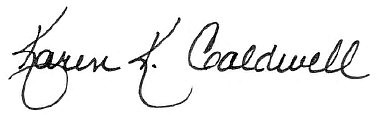 Karen K. Caldwell